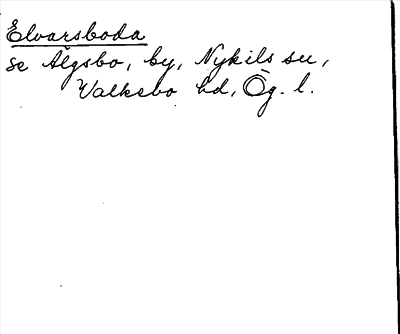 Elvarsboda
se Älgsbo, by, Nykils sn,
Valkebo hd, Ög. l.